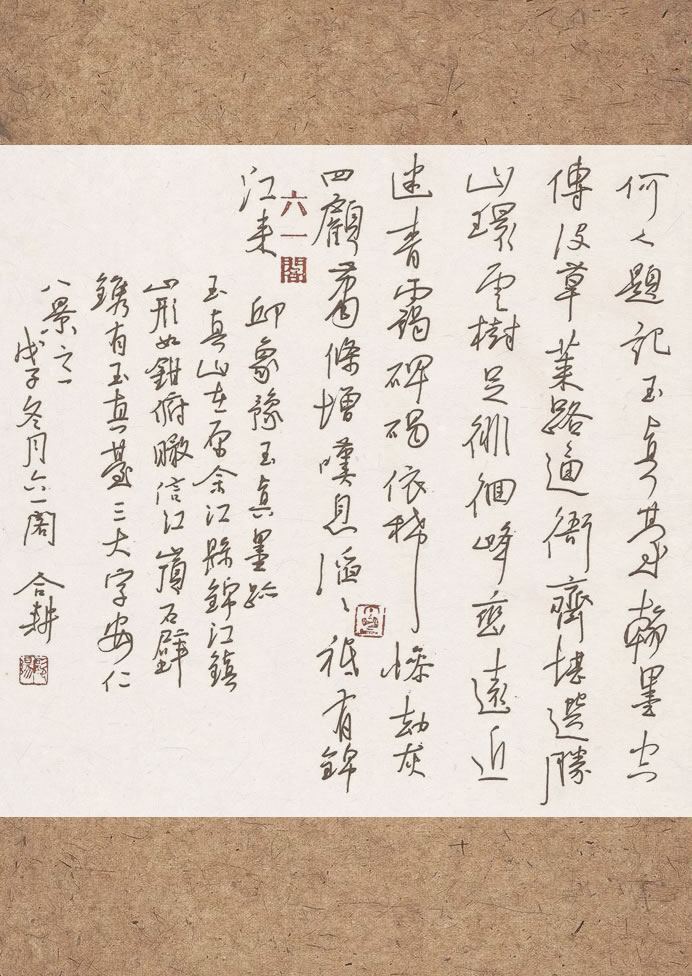 何人題記玉真其翰墨空
傳沒草萊路通衙齊堪選勝
山環雲樹足徘徊峰巒遠近
迷青靄碑碣依稀慘劫灰
四顧蕭條增嘆息滔滔祗有錦
江來
六一閣
邱象豫玉真墨跡
玉真山在原余江縣錦江鎮
山形如鉗俯瞰信江崗石壁
鐫有玉真臺三大字安仁
八景之一
戊子冬月六一閣 合耕